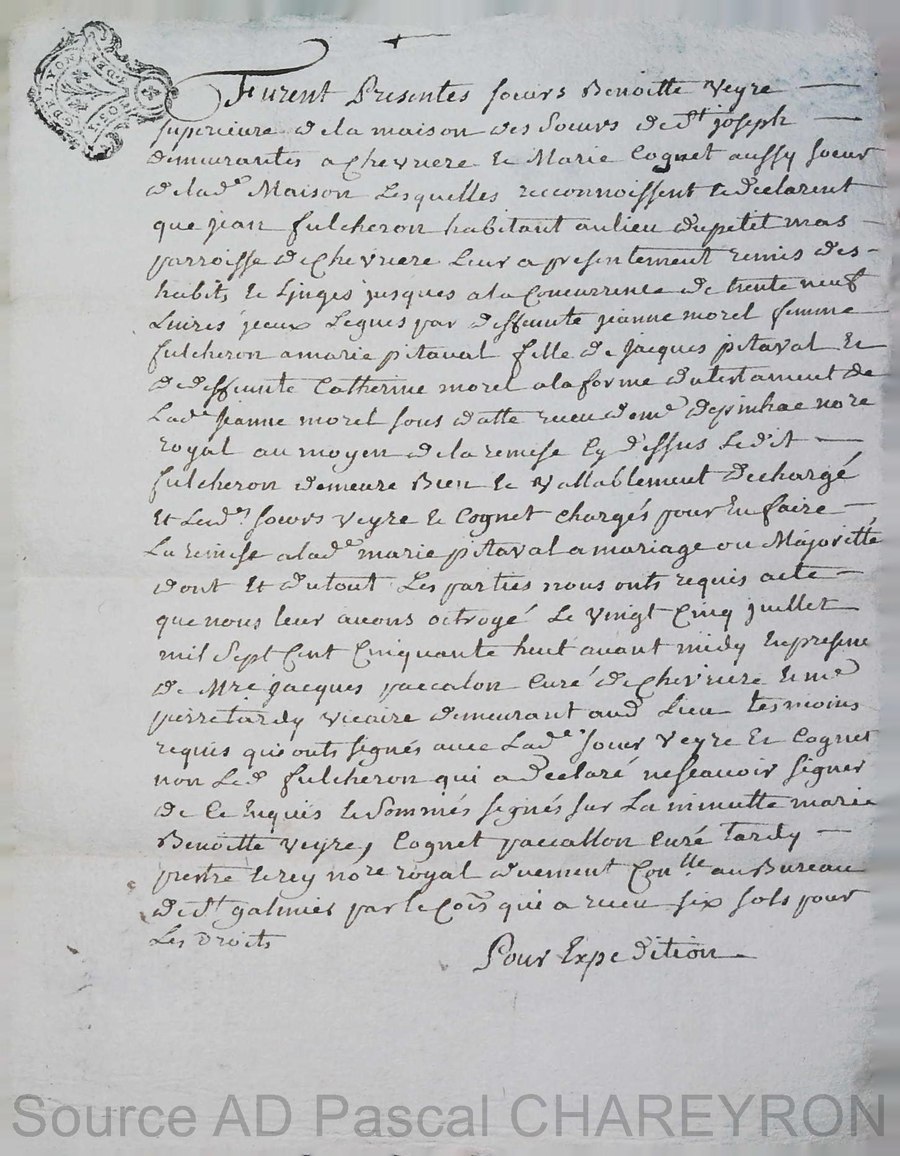 Furent Presentes soeurs Benoitte Veyre
superieure de la maison des Soeurs de St joseph
demeurantes a Chevriere et Marie Cognet aussy soeur
de lade Maison Lesquelles reconnoissent et declarent
que jean fulcheron habitant au lieu du petit mas
parroisse de Chevriere Leur a presentement remis des
habits et Linges jusques a la Concurrence de trente neuf
Livres iceux Legués par deffunte jeanne morel femme
fulcheron a marie pitaval fille de Jacques pitaval Et
de deffunte Catherine morel a la forme du testament de
Lade jeanne morel sous datte receu de me nore
royal au moyen de la remise Cy dessus Ledit
fulcheron demeure Bien et Vallablement dechargé
Et Lesd. soeurs Veyre et Cognet chargés pour En faire
La remise a lade marie pitaval a mariage ou Majorité
dont Et du tout Les parties nous onts requis acte
que nous leur avons octroyé Le Vingt Cinq juillet
mil Sept Cent Cinquante huit avant midy En presence
de Mre jacques paccalon Curé de Chevriere et me
pierre tardy Vicaire demeurant aud Lieu tesmoins
requis qui onts signés avec Lade soeur Veyre Et Cognet
non Led fulcheron qui a declaré ne scavoir signer
de Ce Enquis et Sommés signés sur La minutte marie
Benoitte Veyre, Cognet paccallon Curé tardy
prestre nore royal duement Conlle au Bureau
de St galmier par le Cois qui a receu six sols pour
Les Droits
Pour Expedition
Source AD Pascal CHAREYRON